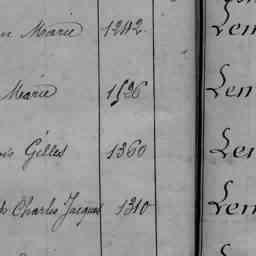 Marie 1242. Lem
Marie 1536 Lem
Gilles 1360 Lem
Charles Jacques 1310 Lem